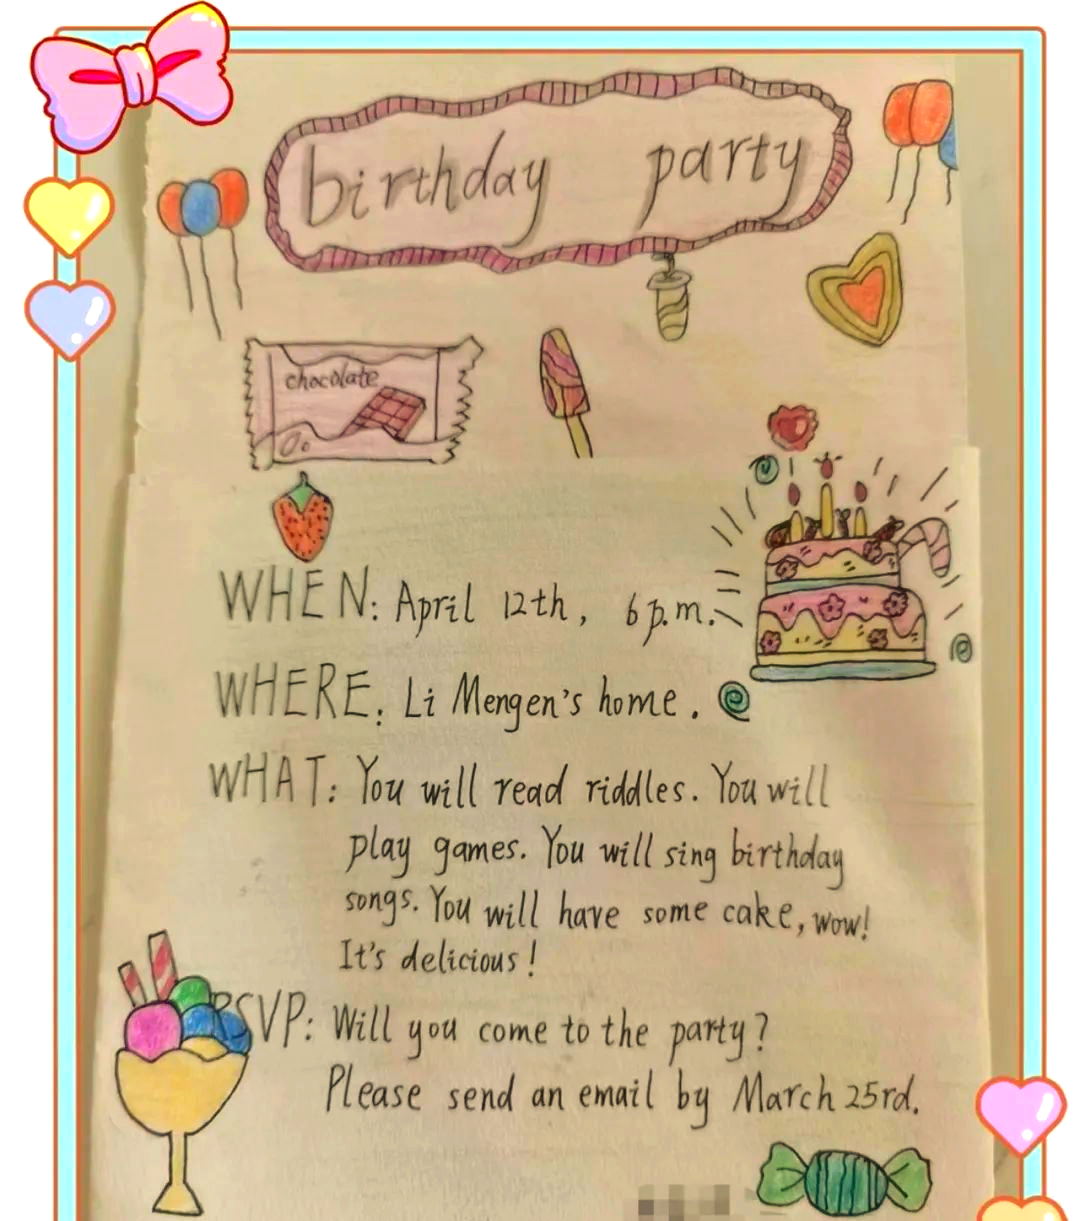 birthday party
chocolate
WHEN: April 12th, 6 p.m.
WHERE: Li Mengen's home.
WHAT: You will read riddles. You will
play games. You will sing birthday
songs. You will have some cake, wow!
It's delicious!
RSVP: Will you come to the party?
Please send an email by March 25rd.